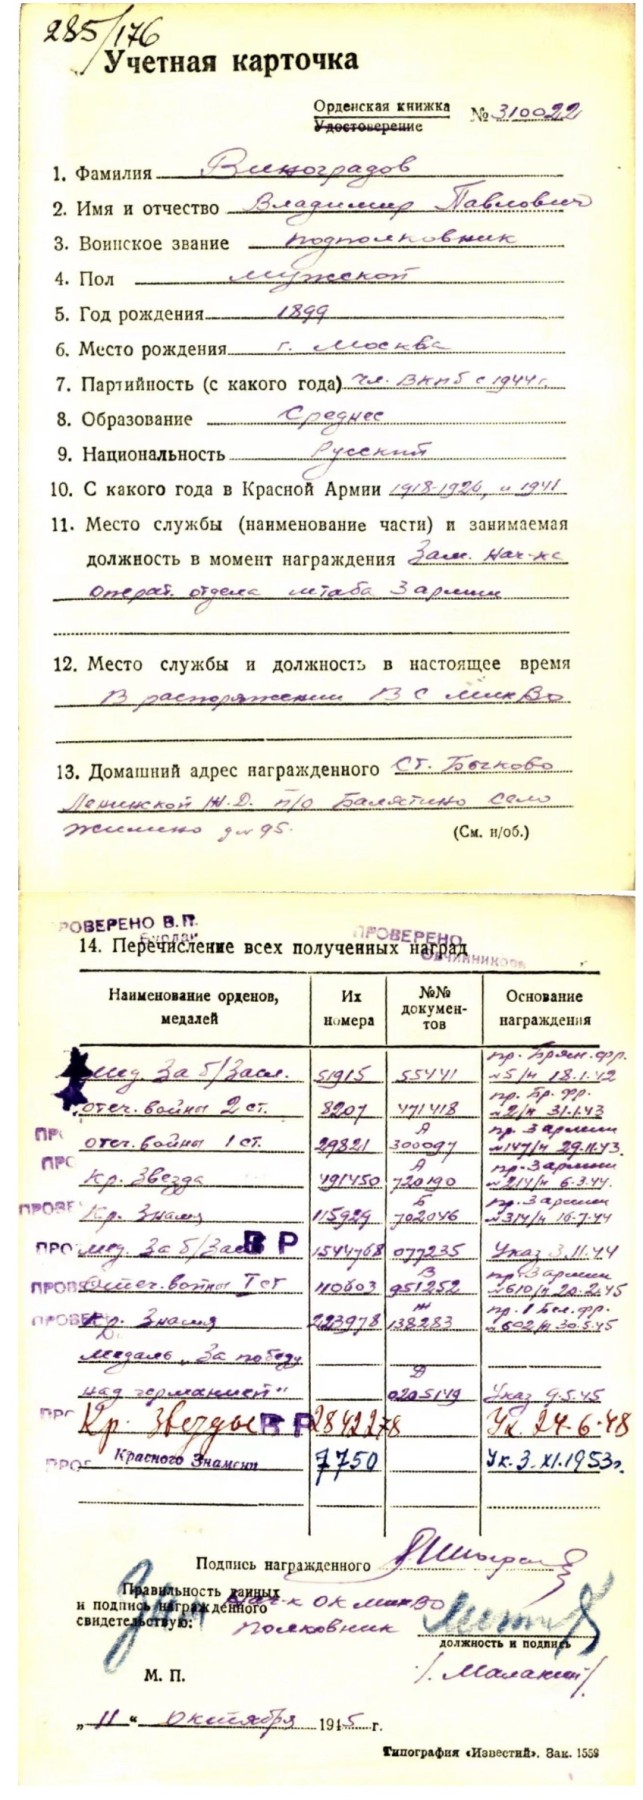 285/176
Учетная карточка
Орденская книжка
Удостоверение № 310022
1. Фамилия Виноградов
2. Имя и отчество Владимир Павлович
3. Воинское звание подполковник
4. Пол мужской
5. Год рождения 1899
6. Место рождения г. Москва
7. Партийность (с какого года) чл. ВКПб с 1944 г.
8. Образование Среднее
9. Национальность Русский
10. С какого года в Красной Армии 1918-1926, и 1941
11. Место службы (наименование части) и занимаемая
должность в момент награждения Зам. Нач-ка
операт. отдела штаба 3 армии
12. Место службы и должность в настоящее время
В распоряжении ВС МикВо
13. Домашний адрес награжденного Ст. Бычково
Ленинской Ж.Д. п/о Балятино село
Жилино д. № 95.
(См. н/об.)
ПРОВЕРЕНО В.П. ПРОВЕРЕНО
14. Перечисление всех полученных наград
Наименование орденов, медалей Их номера №№ документов Основание награждения
мед. За б/Засл. 51915 55441 пр. Брян. фр. №5/н 18.1.42
отеч. войны 2 ст. 8207 471418 пр. Бр. фр. №2/н 31.1.43
отеч. войны 1 ст. 29821 А 300097 пр. 3 армии №147/н 29.11.43.
Кр. Звезда 491450 А 720190 пр. 3 армии №214/н 6.3.44.
ПРОВЕ Кр. Знамя 115929 Б 702046 пр. 3 армии №314/н 16.7.44
ПРО мед. За б/Засл ВР 1544768 077235 Указ 3.11.44
ПРОВ Отеч. войны I ст 110603 В 951252 пр. 3 армии №610/н 20.2.45
ПРОВЕР Кр. Знамя 223978 Ж 138283 пр. 1 Бел. фр. №602/н 30.5.45
Медаль „За победу
над германией" Д 0205149 Указ 9.5.45
Кр. Звезды ВР 2842278 Ук. 24-6-48
Красного Знамени 7750 Ук. 3.XI.1953г.
Подпись награжденного
Правильность данных
и подпись награжденного
свидетельствую:
Нач-к ОК МикВО
полковник
должность и подпись
/. Малакин/.
М. П.
„11" октября 1945 г.
Типография «Известий». Зак. 1558